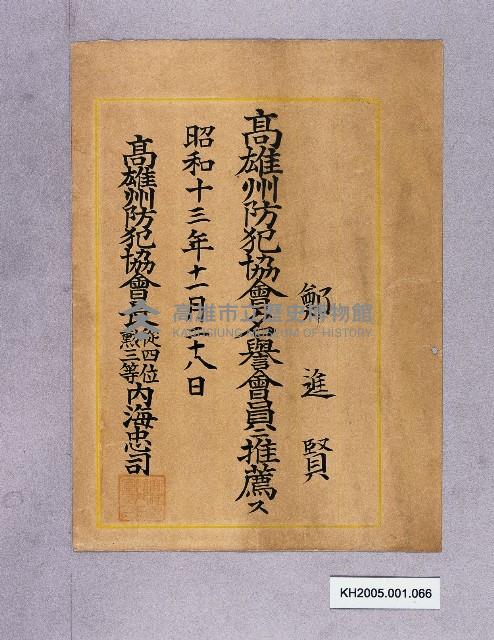 鄭進賢
高雄州防犯協會名譽會員ニ推薦ス
昭和十三年十一月二十八日
高雄州防犯協會長從四位勲三等內海忠司
高雄市立歷史博物館
KAOHSIUNG MUSEUM OF HISTORY
KH2005.001.066